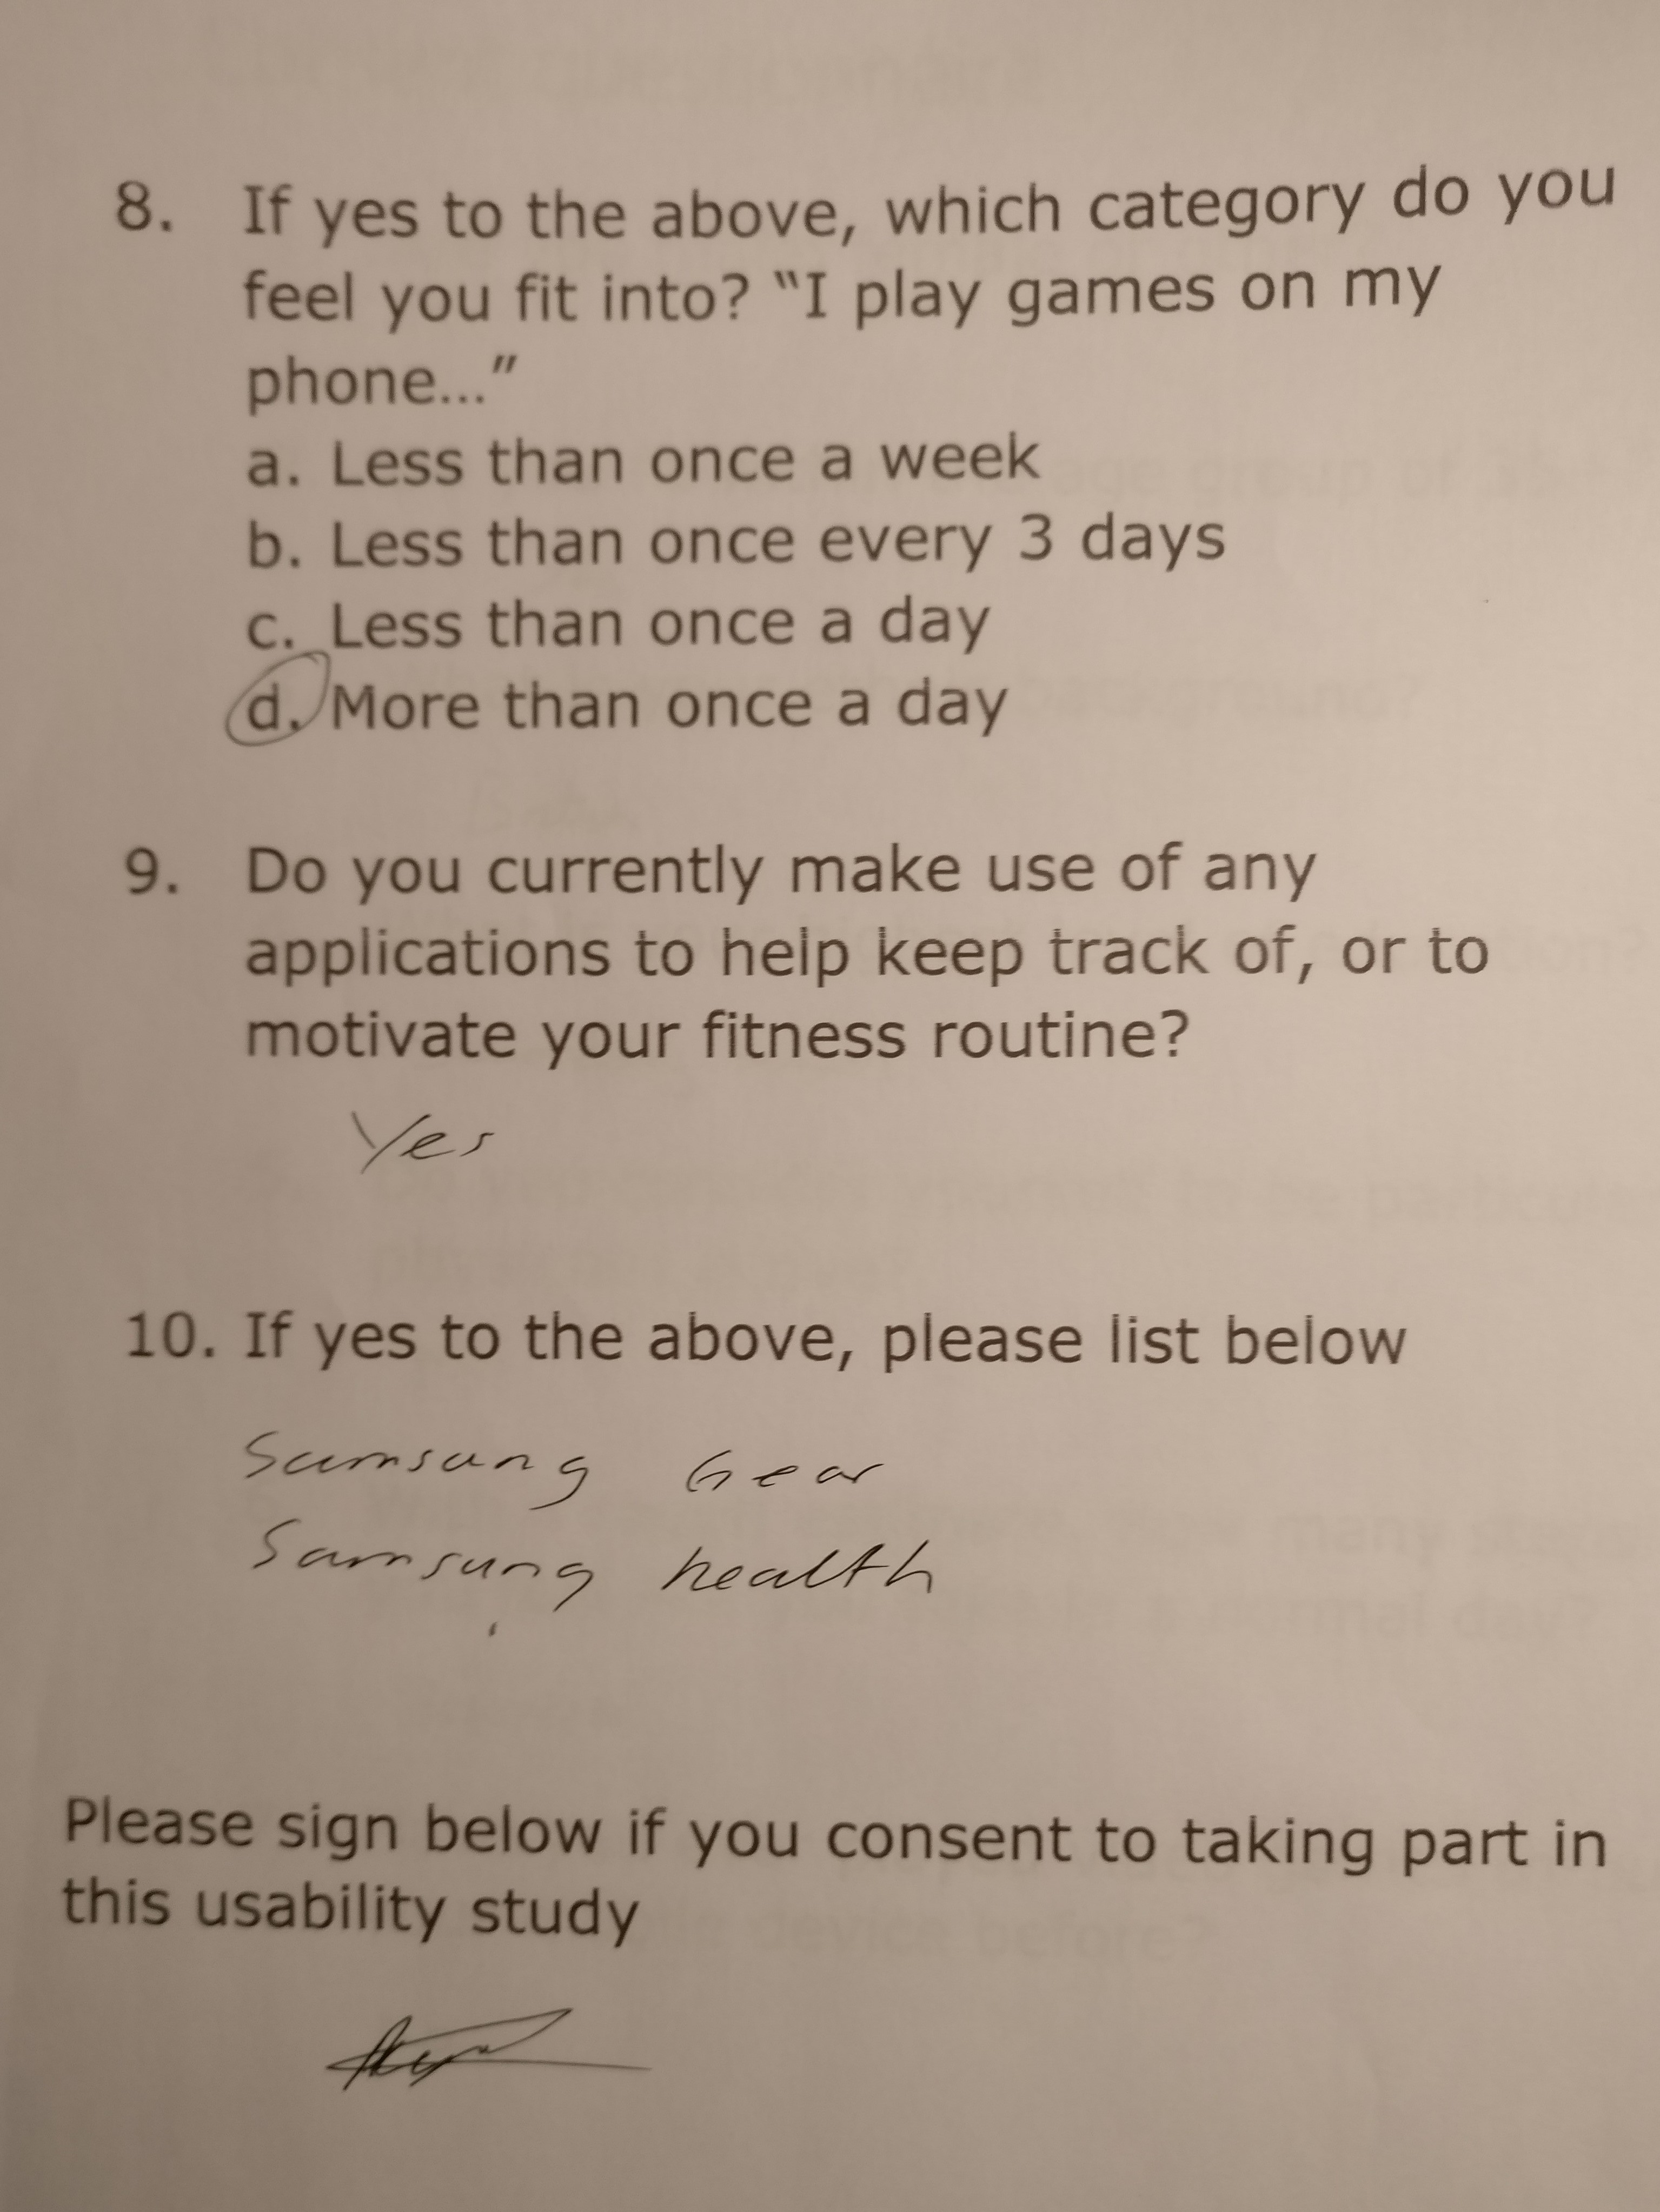 8. If yes to the above, which category do you
feel you fit into? “I play games on my
phone...”
a. Less than once a week
b. Less than once every 3 days
c. Less than once a day
d. More than once a day
9. Do you currently make use of any
applications to help keep track of, or to
motivate your fitness routine?
Yes
10. If yes to the above, please list below
Samsung Gear
Samsung health
Please sign below if you consent to taking part in
this usability study